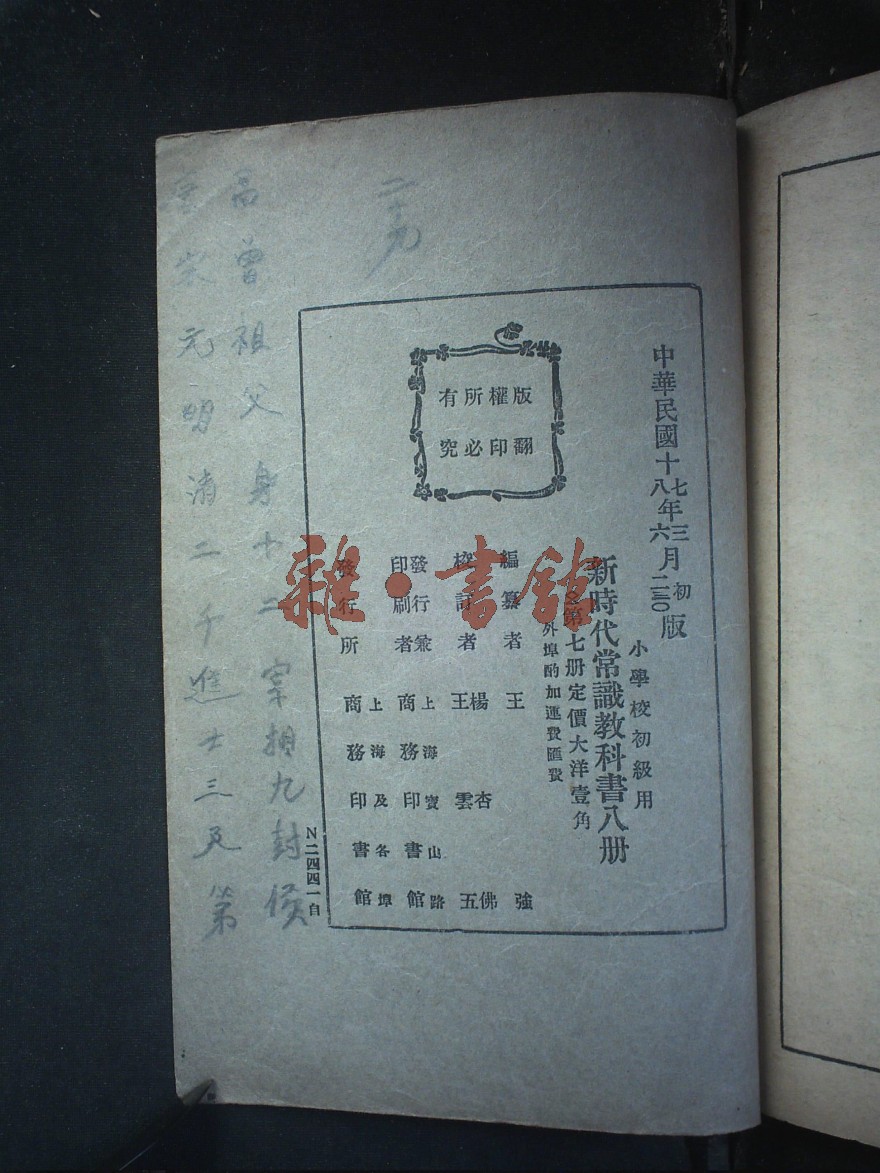 中華民國十七年三月初版
八 六 二三〇
小學校初級用
新時代常識教科書八册
第七册定價大洋壹角
外埠酌加運費匯費
編纂者 王強
校訂者 楊杏佛
王雲五
發行兼印刷者 上海寶山路
商務印書館
發行所 上海及各埠
商務印書館
版權所有
翻印必究
N二四四一自
二十九
高曾祖父身十二宰相九封侯
宋元明清二千進士三及第
雜·書館